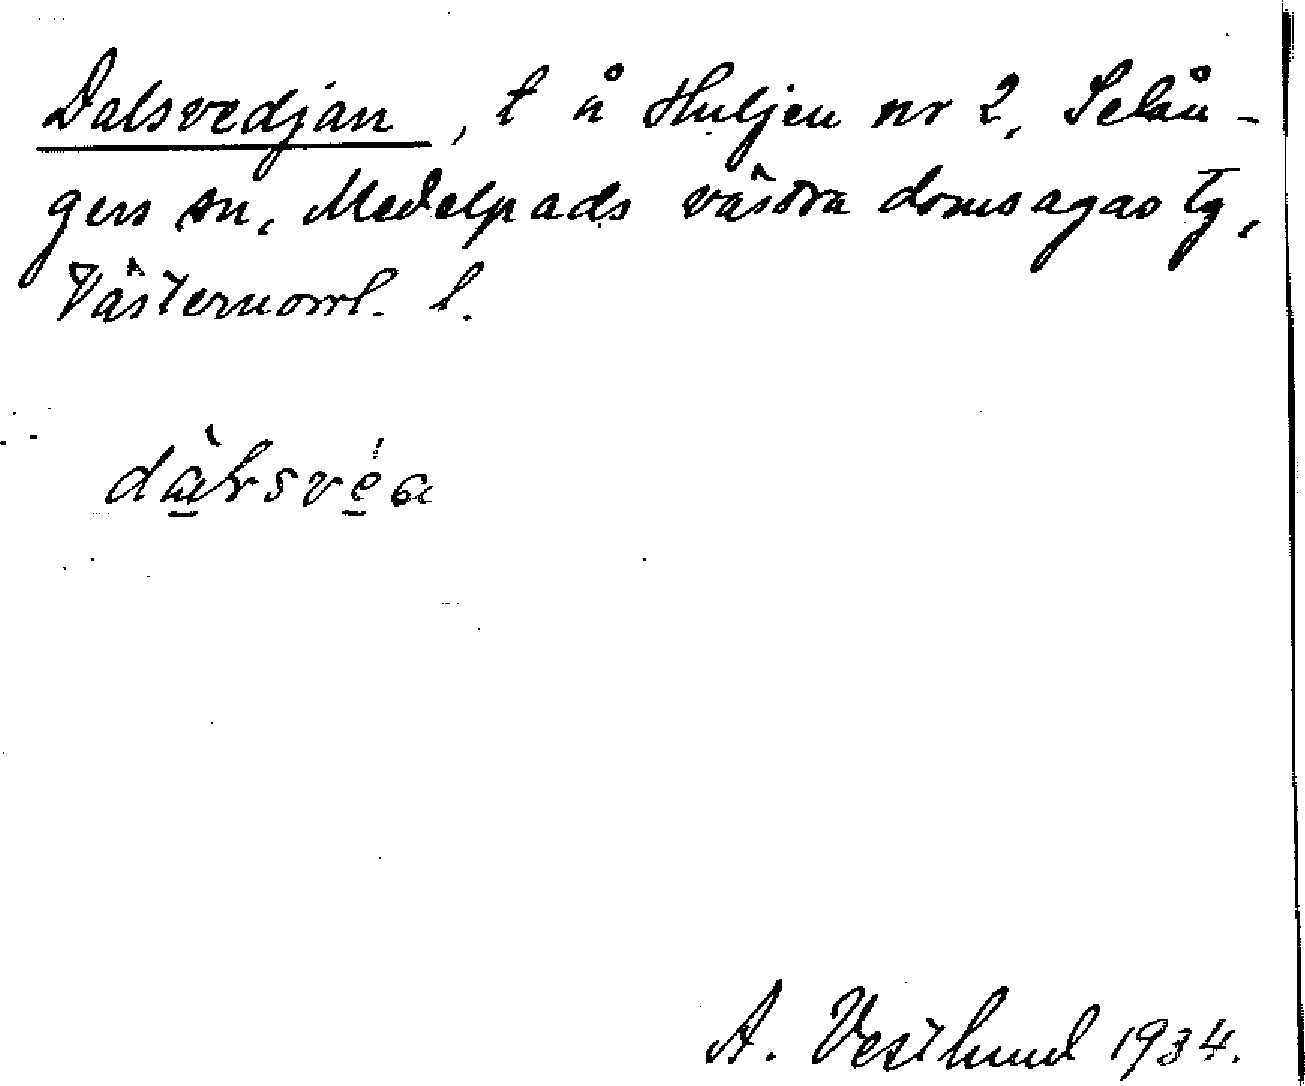 Dalsvedjan, t å Huljen nr 2, Selån-
gers sn, Medelpads västra domsagas tg,
Västernorrl. l.
A. Vestlund 1934.